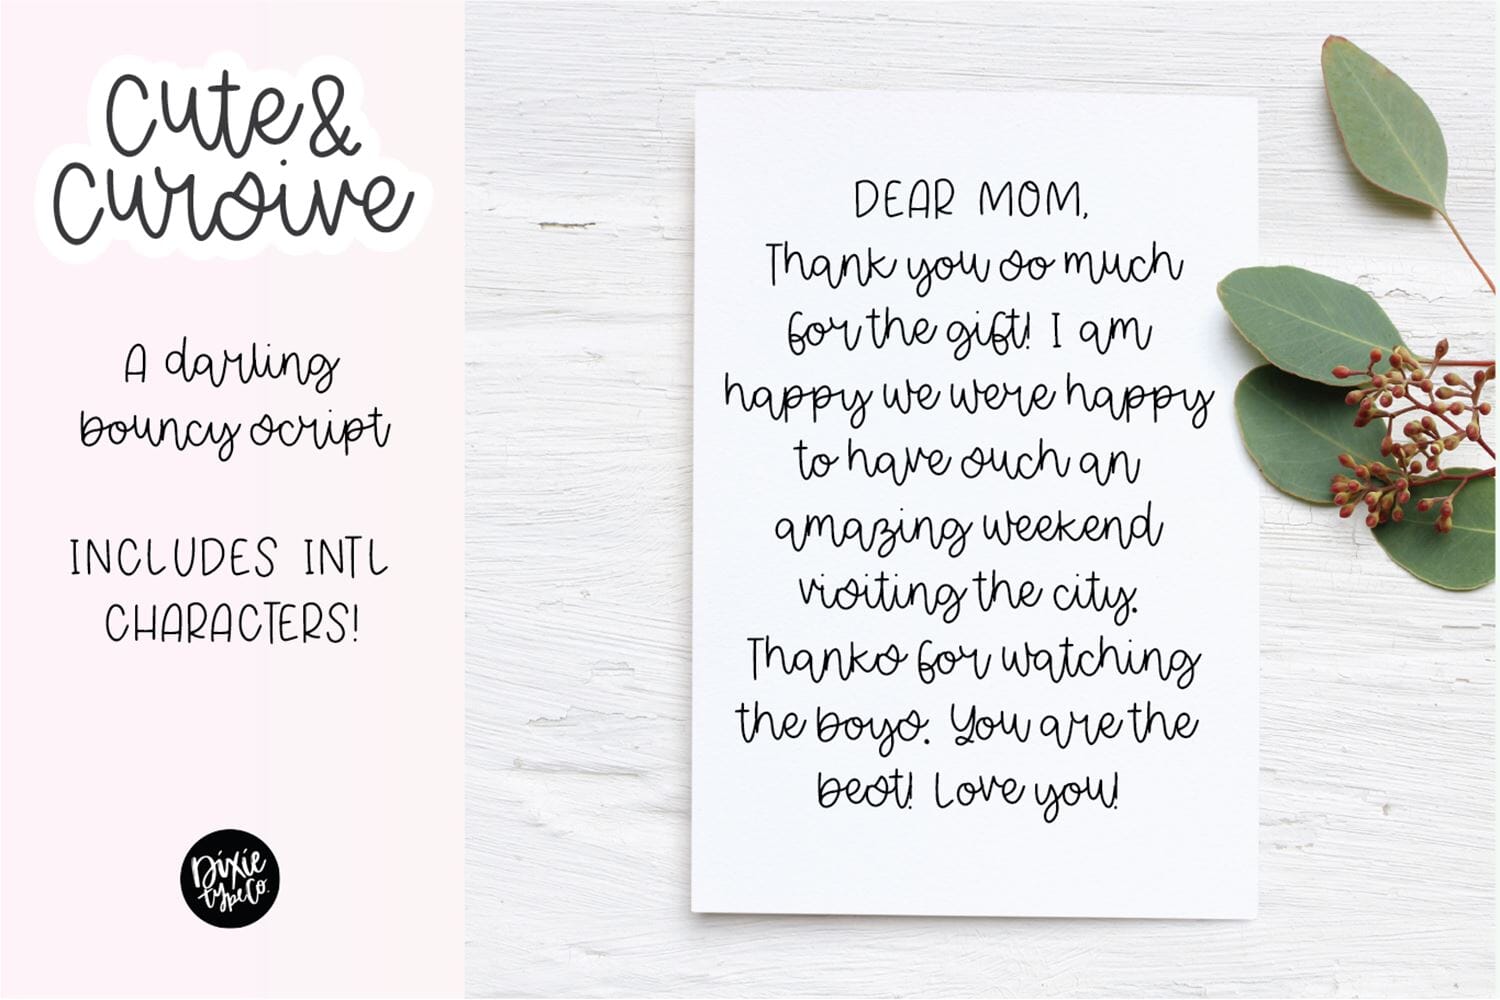 Cute &
Cursive
A darling
bouncy script
INCLUDES INTL
CHARACTERS!
Dixie
type Co.
DEAR MOM,
Thank you so much
for the gift! I am
happy we were happy
to have such an
amazing weekend
visiting the city.
Thanks for watching
the boys. You are the
best! Love you!